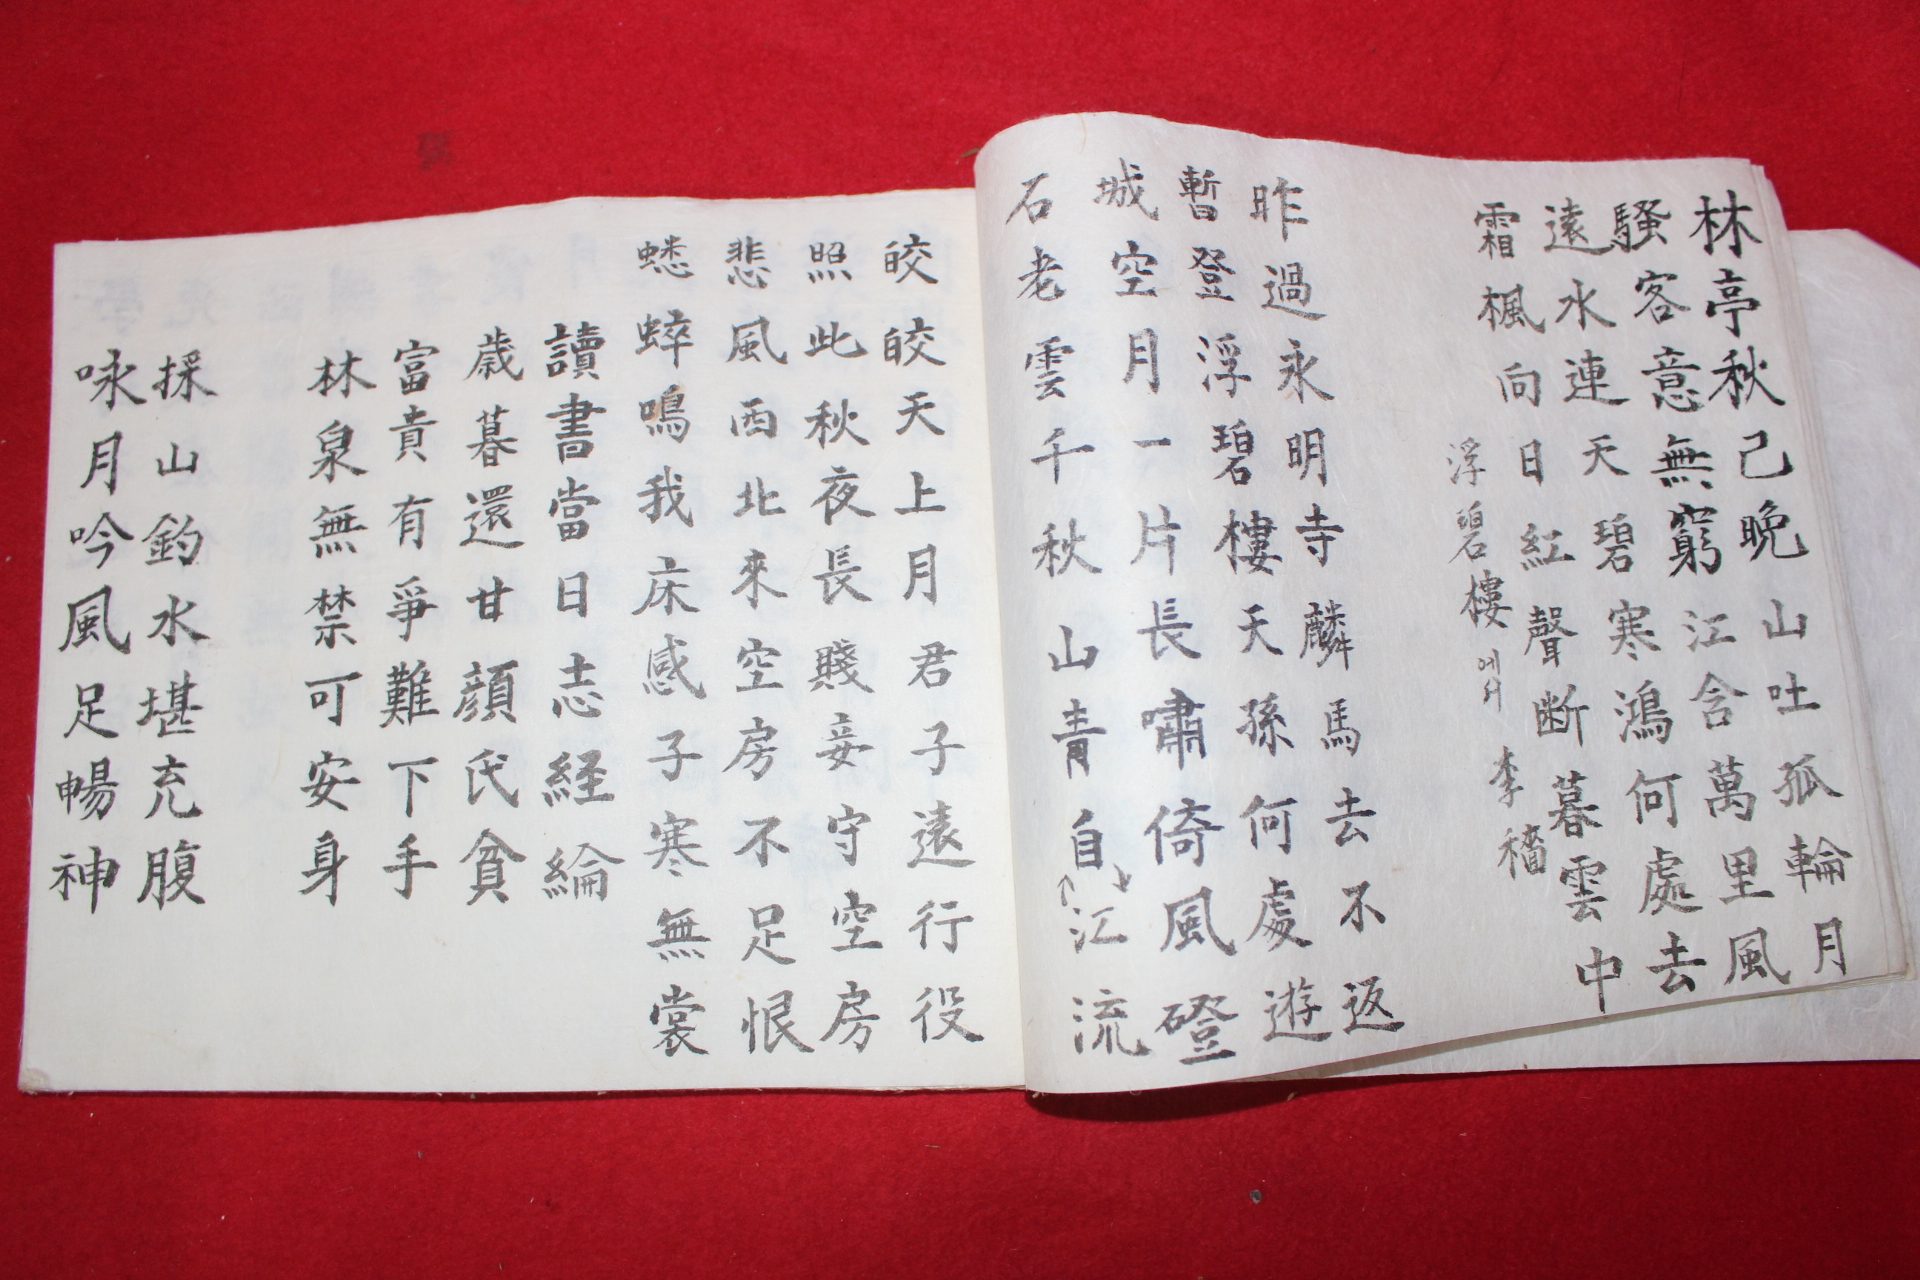 林亭秋己晩山吐孤輪月
騷客意無窮江含萬里風
遠水連天碧寒鴻何處去
霜楓向日紅聲断暮雲中
浮碧樓에서 李穡
昨過永明寺麟馬去不返
暫登浮碧樓天孫何處遊
城空月一片長嘯倚風磴
石老雲千秋山青自江流
皎皎天上月君子遠行役
照此秋夜長賤妾守空房
悲風西北來空房不足恨
蟋蟀鳴我床感子寒無裳
讀書當日志経綸
歳暮還甘顔氏貧
富貴有爭難下手
林泉無禁可安身
採山釣水堪充腹
咏月吟風足暢神